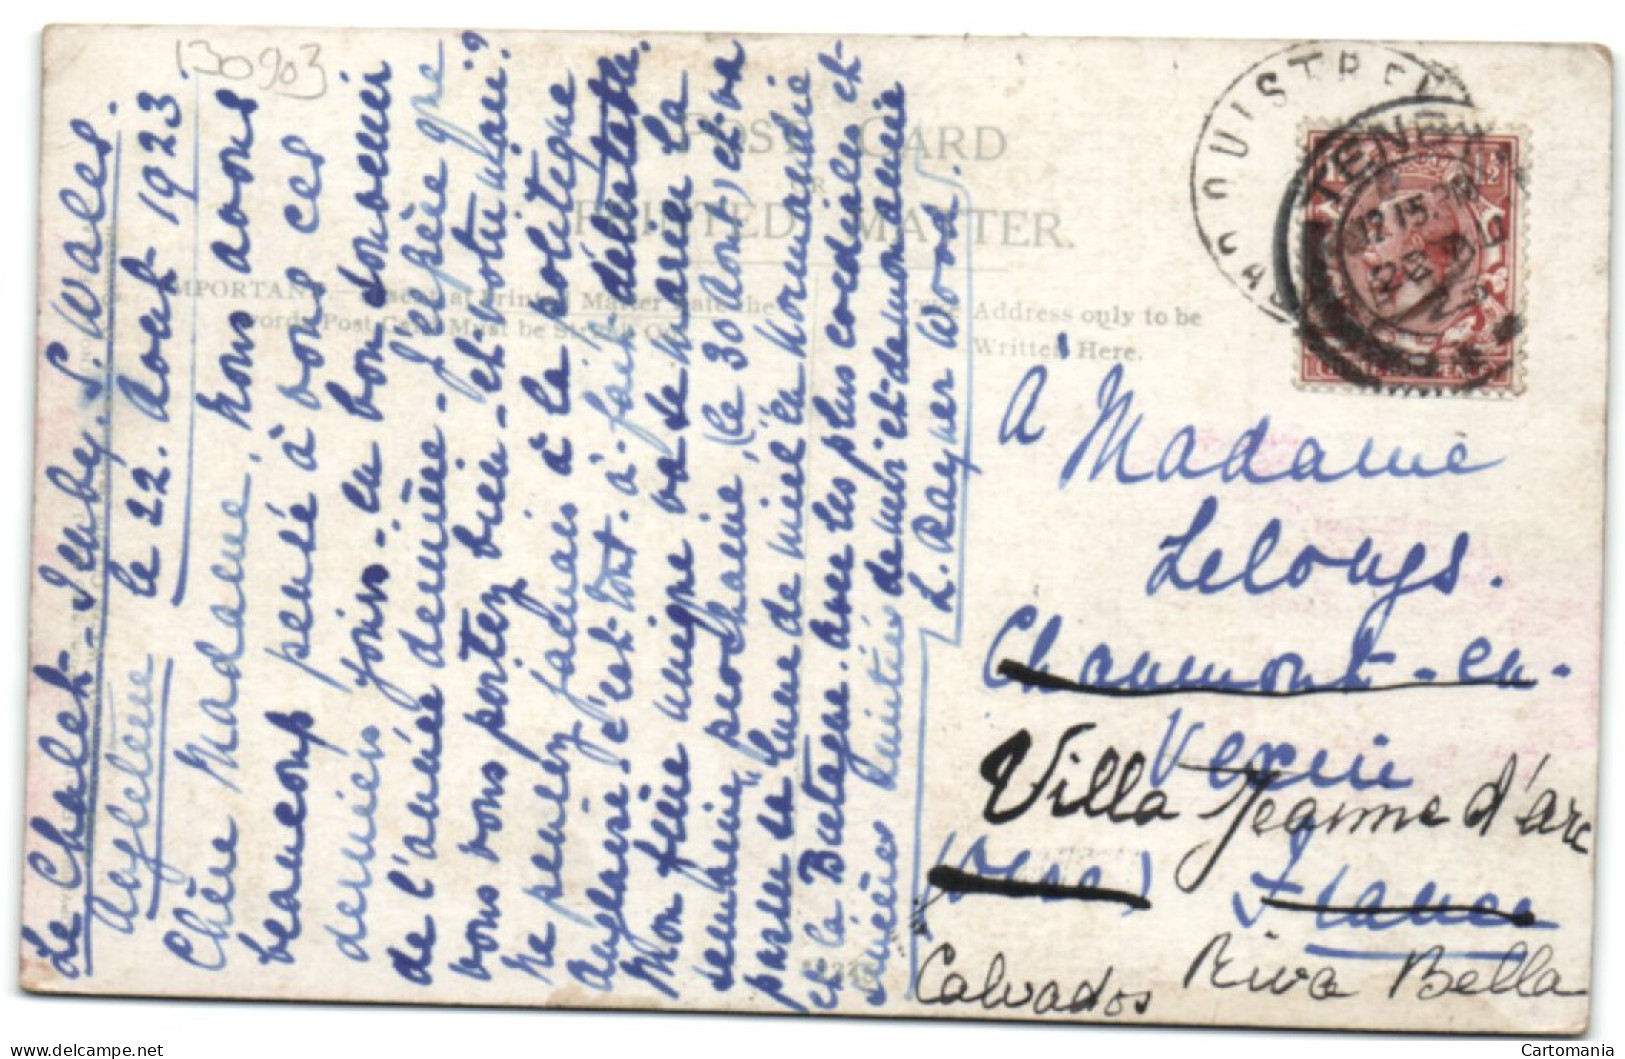 130903
Le Chalet - Tenby. S. Wales.
Angleterre le 22. Aout 1923.
Chère Madame, nous avons
beaucoup pensé à vous ces
derniers jours - le bon souvenir
de l'année dernière - J'espère que
vous vous portez bien - et votre mari?
ne pensez jamais à la politique
anglaise, c'est-tout-à-fait détestable.
Mon frère unique va se marier la
semaine prochaine, (le 30 Aout) et va
passer sa "lune de miel" en Normandie
et la Bretagne. avec les plus cordiales et
sincères amitiés de mari et de moi-même
L. Rayner Wood.
POST CARD
OR
PRINTED MATTER.
IMPORTANT.—If sent at Printed Matter Rate the
words Post Card Must be Struck Out.
The Address only to be
Written Here.
OUISTREHAM
CALVADOS
TENBY
12.15 PM
22 AU
23
À Madame
Lelongs.
Chaumont-en-
Vexin
Villa Jeanne d'arc
(Oise) France
Calvados Riva Bella
Cartomania
delcampe.net